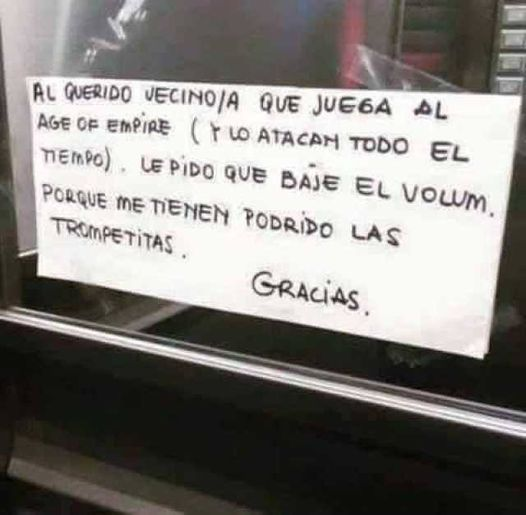 AL QUERIDO VECINO/A QUE JUEGA AL
AGE OF EMPIRE ( Y LO ATACAN TODO EL
TIEMPO). LE PIDO QUE BAJE EL VOLUM.
PORQUE ME TIENEN PODRIDO LAS
TROMPETITAS.
GRACIAS.